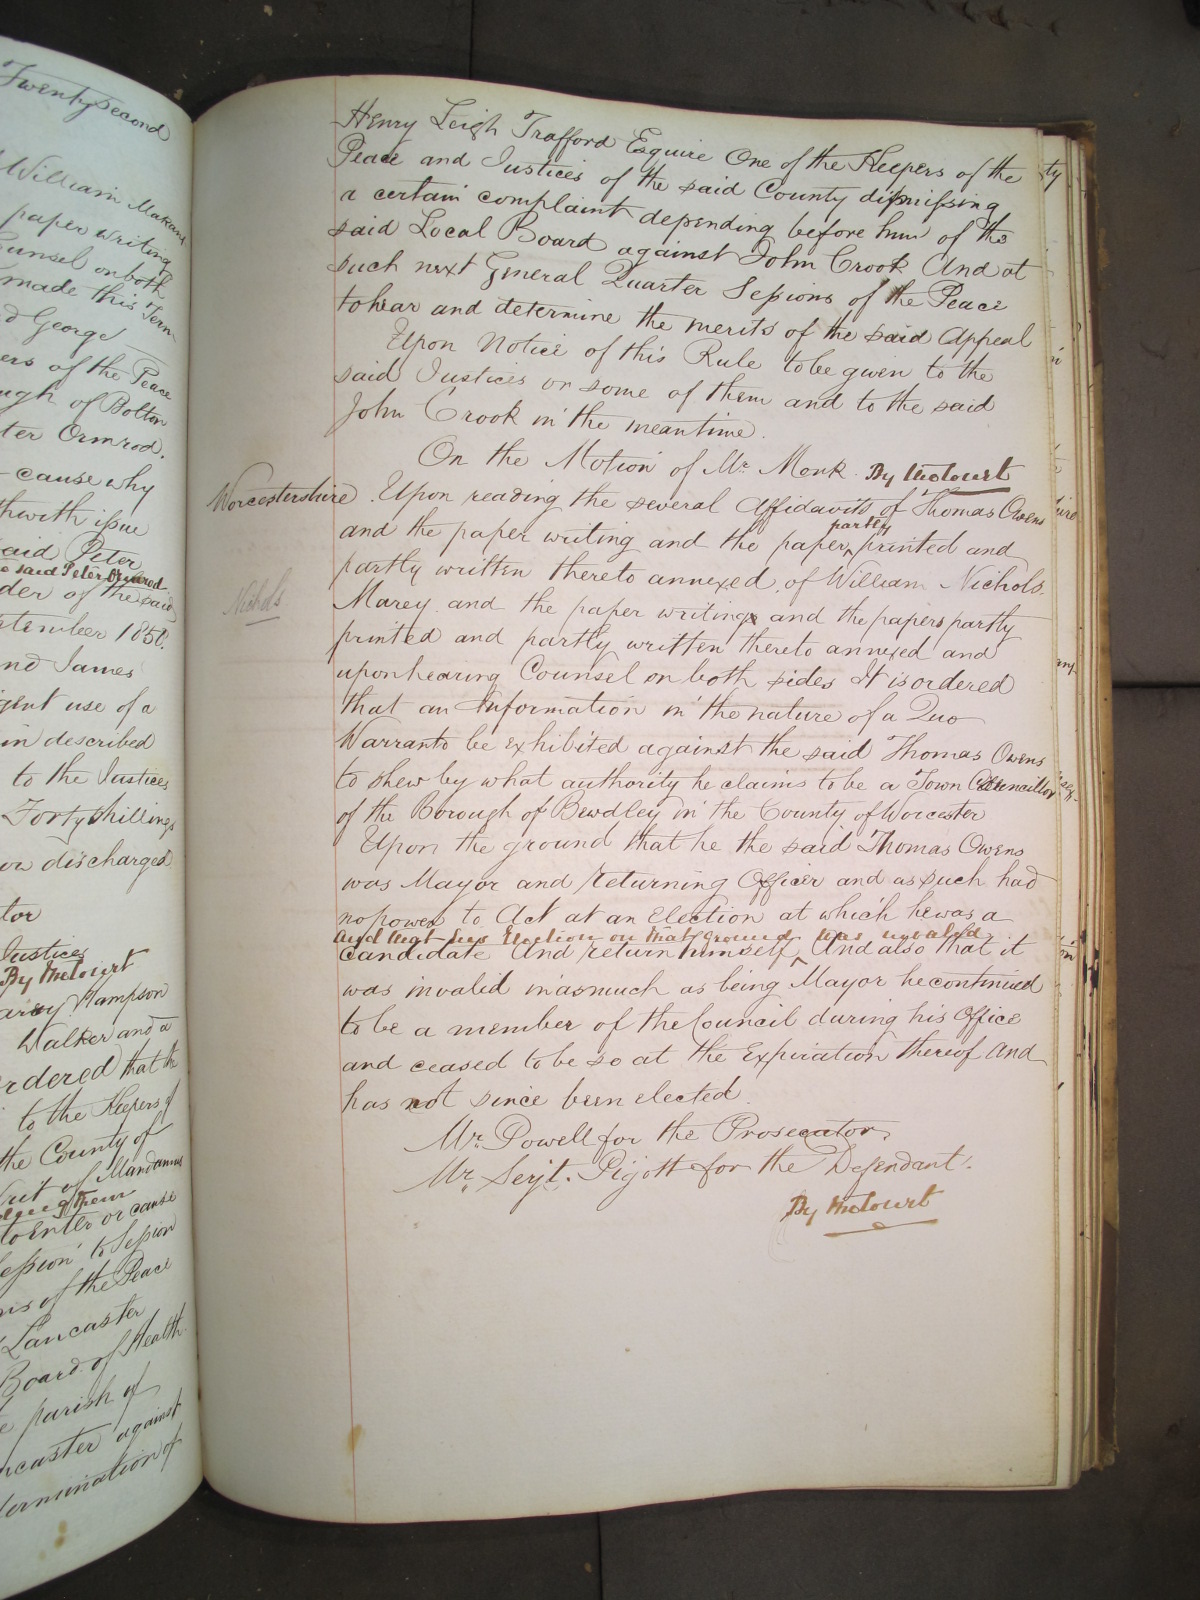 Twentysecond
William Makean
paper writing
Counsel on both
made this Term
d George
ers of the Peace
ugh of Bolton
ter Ormrod.
cause why
thwith issue
said Peter
e said Peter Ormrod
der of the said
tember 1850.
nd James
gent use of a
in described
to the Justices
Forty shillings
or discharged
tor
Justices
By the Court
Hampson
Walker and a
rdered that the
to the Keepers of
the County of
Writ of Mandamus
of them
to Enter or cause
Session to Session
of the Peace
Lancaster
Board of Health
parish of
ncaster against
termination of
Henry Leigh Trafford Esquire One of the Keepers of the
Peace and Justices of the said County dismissing
a certain complaint depending before him of the
said Local Board against John Crook And at
such next General Quarter Sessions of the Peace
to hear and determine the merits of the said Appeal
Upon Notice of this Rule to be given to the
said Justices or some of them and to the said
John Crook in the meantime.
On the Motion of Mr. Monk. By the Court
Worcestershire. Upon reading the several Affidavits of Thomas Owens
and the paper writing and the paper partly printed and
partly written thereto annexed, of William Nichols
Nichols
Marcy and the paper writing and the papers partly
printed and partly written thereto annexed and
upon hearing Counsel on both sides It is ordered
that an Information in the nature of a Quo
Warranto be exhibited against the said Thomas Owens
to shew by what authority he claims to be a Town Councillor
of the Borough of Bewdley in the County of Worcester
Upon the ground that he the said Thomas Owens
was Mayor and returning Officer and as such had
no power to Act at an Election at which he was a
and that his Election on that ground was invalid
candidate And return himself And also that it
was invalid inasmuch as being Mayor he continued
to be a member of the Council during his Office
and ceased to be so at the Expiration thereof And
has not since been elected.
Mr. Powell for the Prosecutor.
Mr. Serjt. Pigott for the Defendant.
By the Court